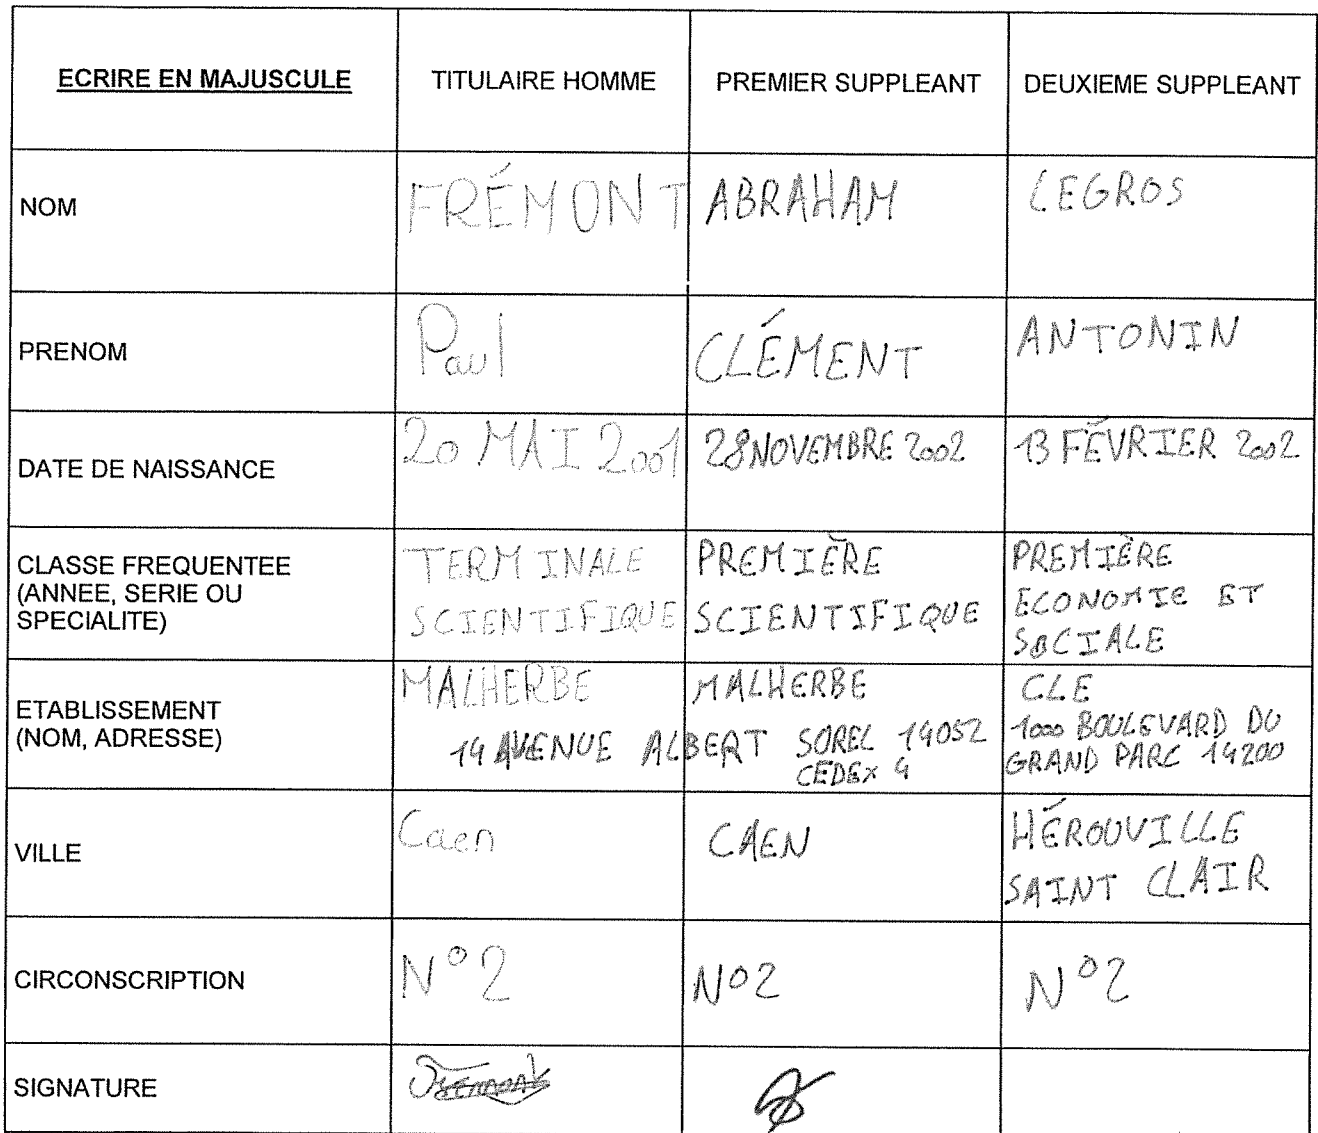 ECRIRE EN MAJUSCULE TITULAIRE HOMME PREMIER SUPPLEANT DEUXIEME SUPPLEANT
NOM FRÉMONT ABRAHAM LEGROS
PRENOM Paul CLÉMENT ANTONIN
DATE DE NAISSANCE 20 MAI 2001 28 NOVEMBRE 2002 13 FÉVRIER 2002
CLASSE FREQUENTEE
(ANNEE, SERIE OU
SPECIALITE)
TERMINALE
SCIENTIFIQUE
PREMIÈRE
SCIENTIFIQUE
PREMIÈRE
ECONOMIE ET
SOCIALE
ETABLISSEMENT
(NOM, ADRESSE)
MALHERBE MALHERBE
14 AVENUE ALBERT SOREL 14052
CEDEX 4
CLE
1000 BOULEVARD DU
GRAND PARC 14200
VILLE Caen CAEN
HÉROUVILLE
SAINT CLAIR
CIRCONSCRIPTION N°2 N°2 N°2
SIGNATURE Frémont